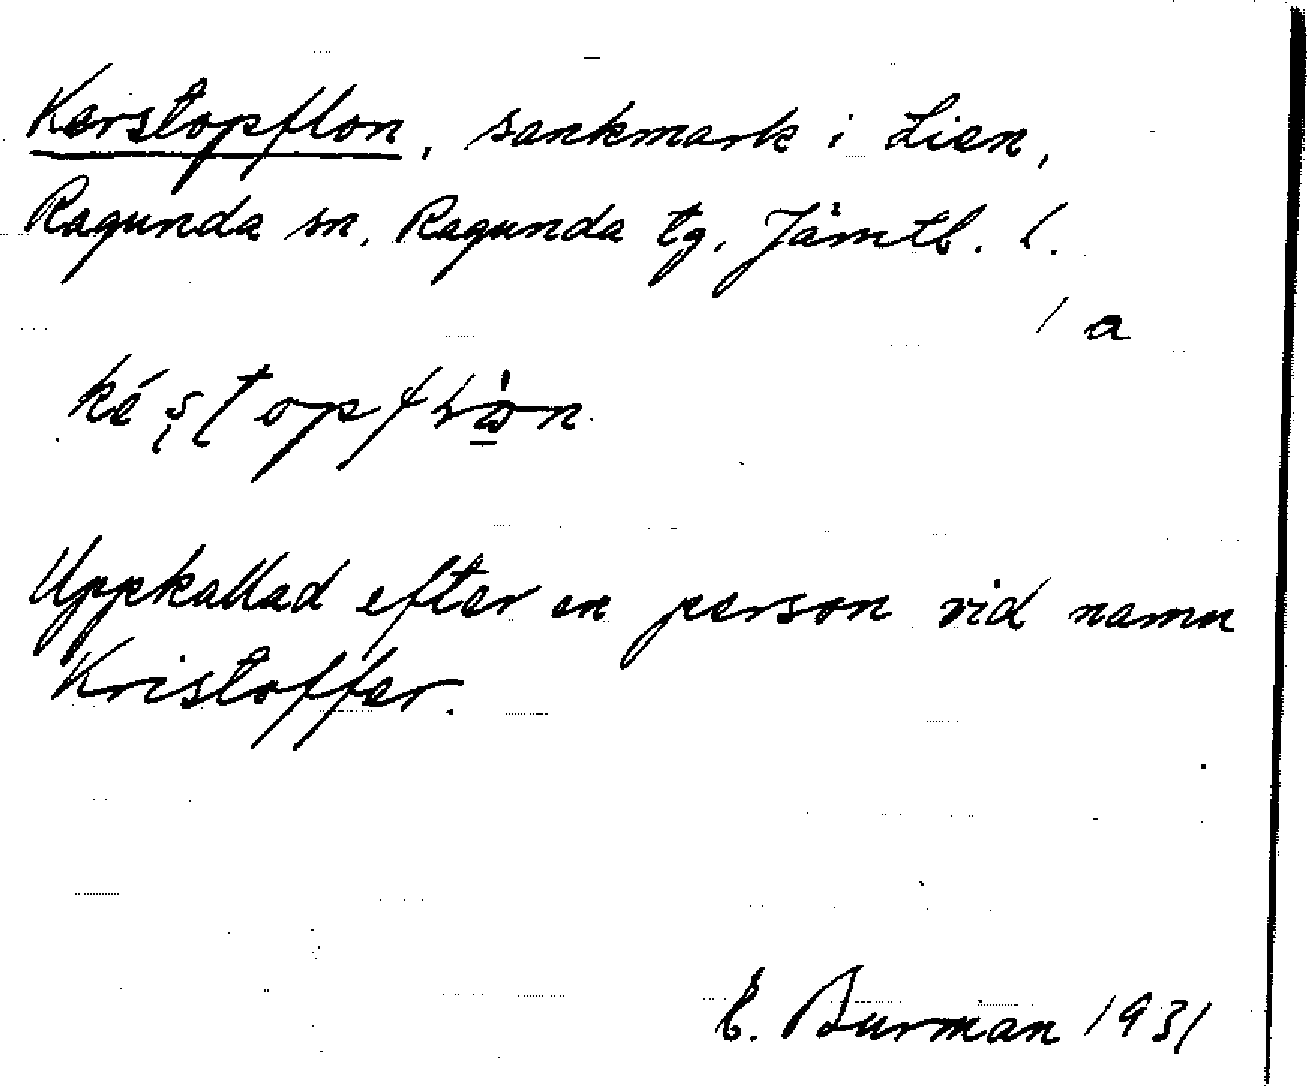 Kerstopflon, sankmark i Lien,
Ragunda sn. Ragunda tg. Jämtl. l.
/ a
Uppkallad efter en person vid namn
Kristoffer.
E. Burman 1931